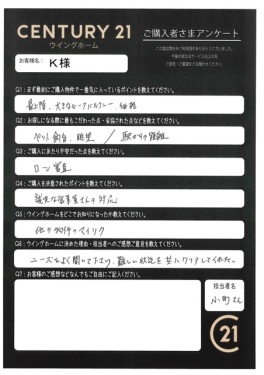 CENTURY 21
ウイングホーム
ご購入者さまアンケート
お客様名:
K様
Q1:まず最初にご購入物件で一番気に入っているポイントを教えてください。
最上階、大きなルーフバルコニー、価格
Q2:お探しになる際に最もこだわった点・妥協された点などを教えてください。
ペット飼育、眺望 / 駅からの距離
Q3:ご購入にあたり不安だった点を教えてください。
ローン審査
Q4:ご購入を決意されたポイントを教えてください。
誠実な営業さんの対応
Q5:ウイングホームをどこでお知りになったか教えてください。
他の物件のマイソク
Q6:ウイングホームに決めた理由・担当者へのご感想ご意見を教えてください。
ニーズをよく聞いて下さり、難しい状況を共にクリアしてくれた。
Q7:お客様のご感想などなんでもご自由にご記入ください。
担当者名
小町さん
C21